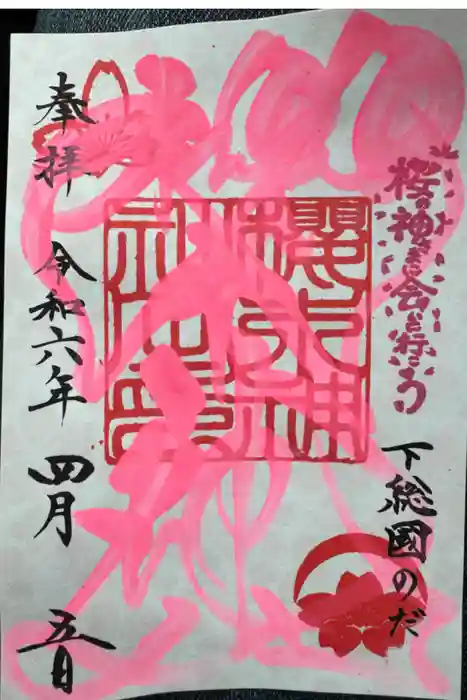 桜の神さまに会いに行こう
下総國のだ
櫻木神社
奉拝
令和六年
四月
五日